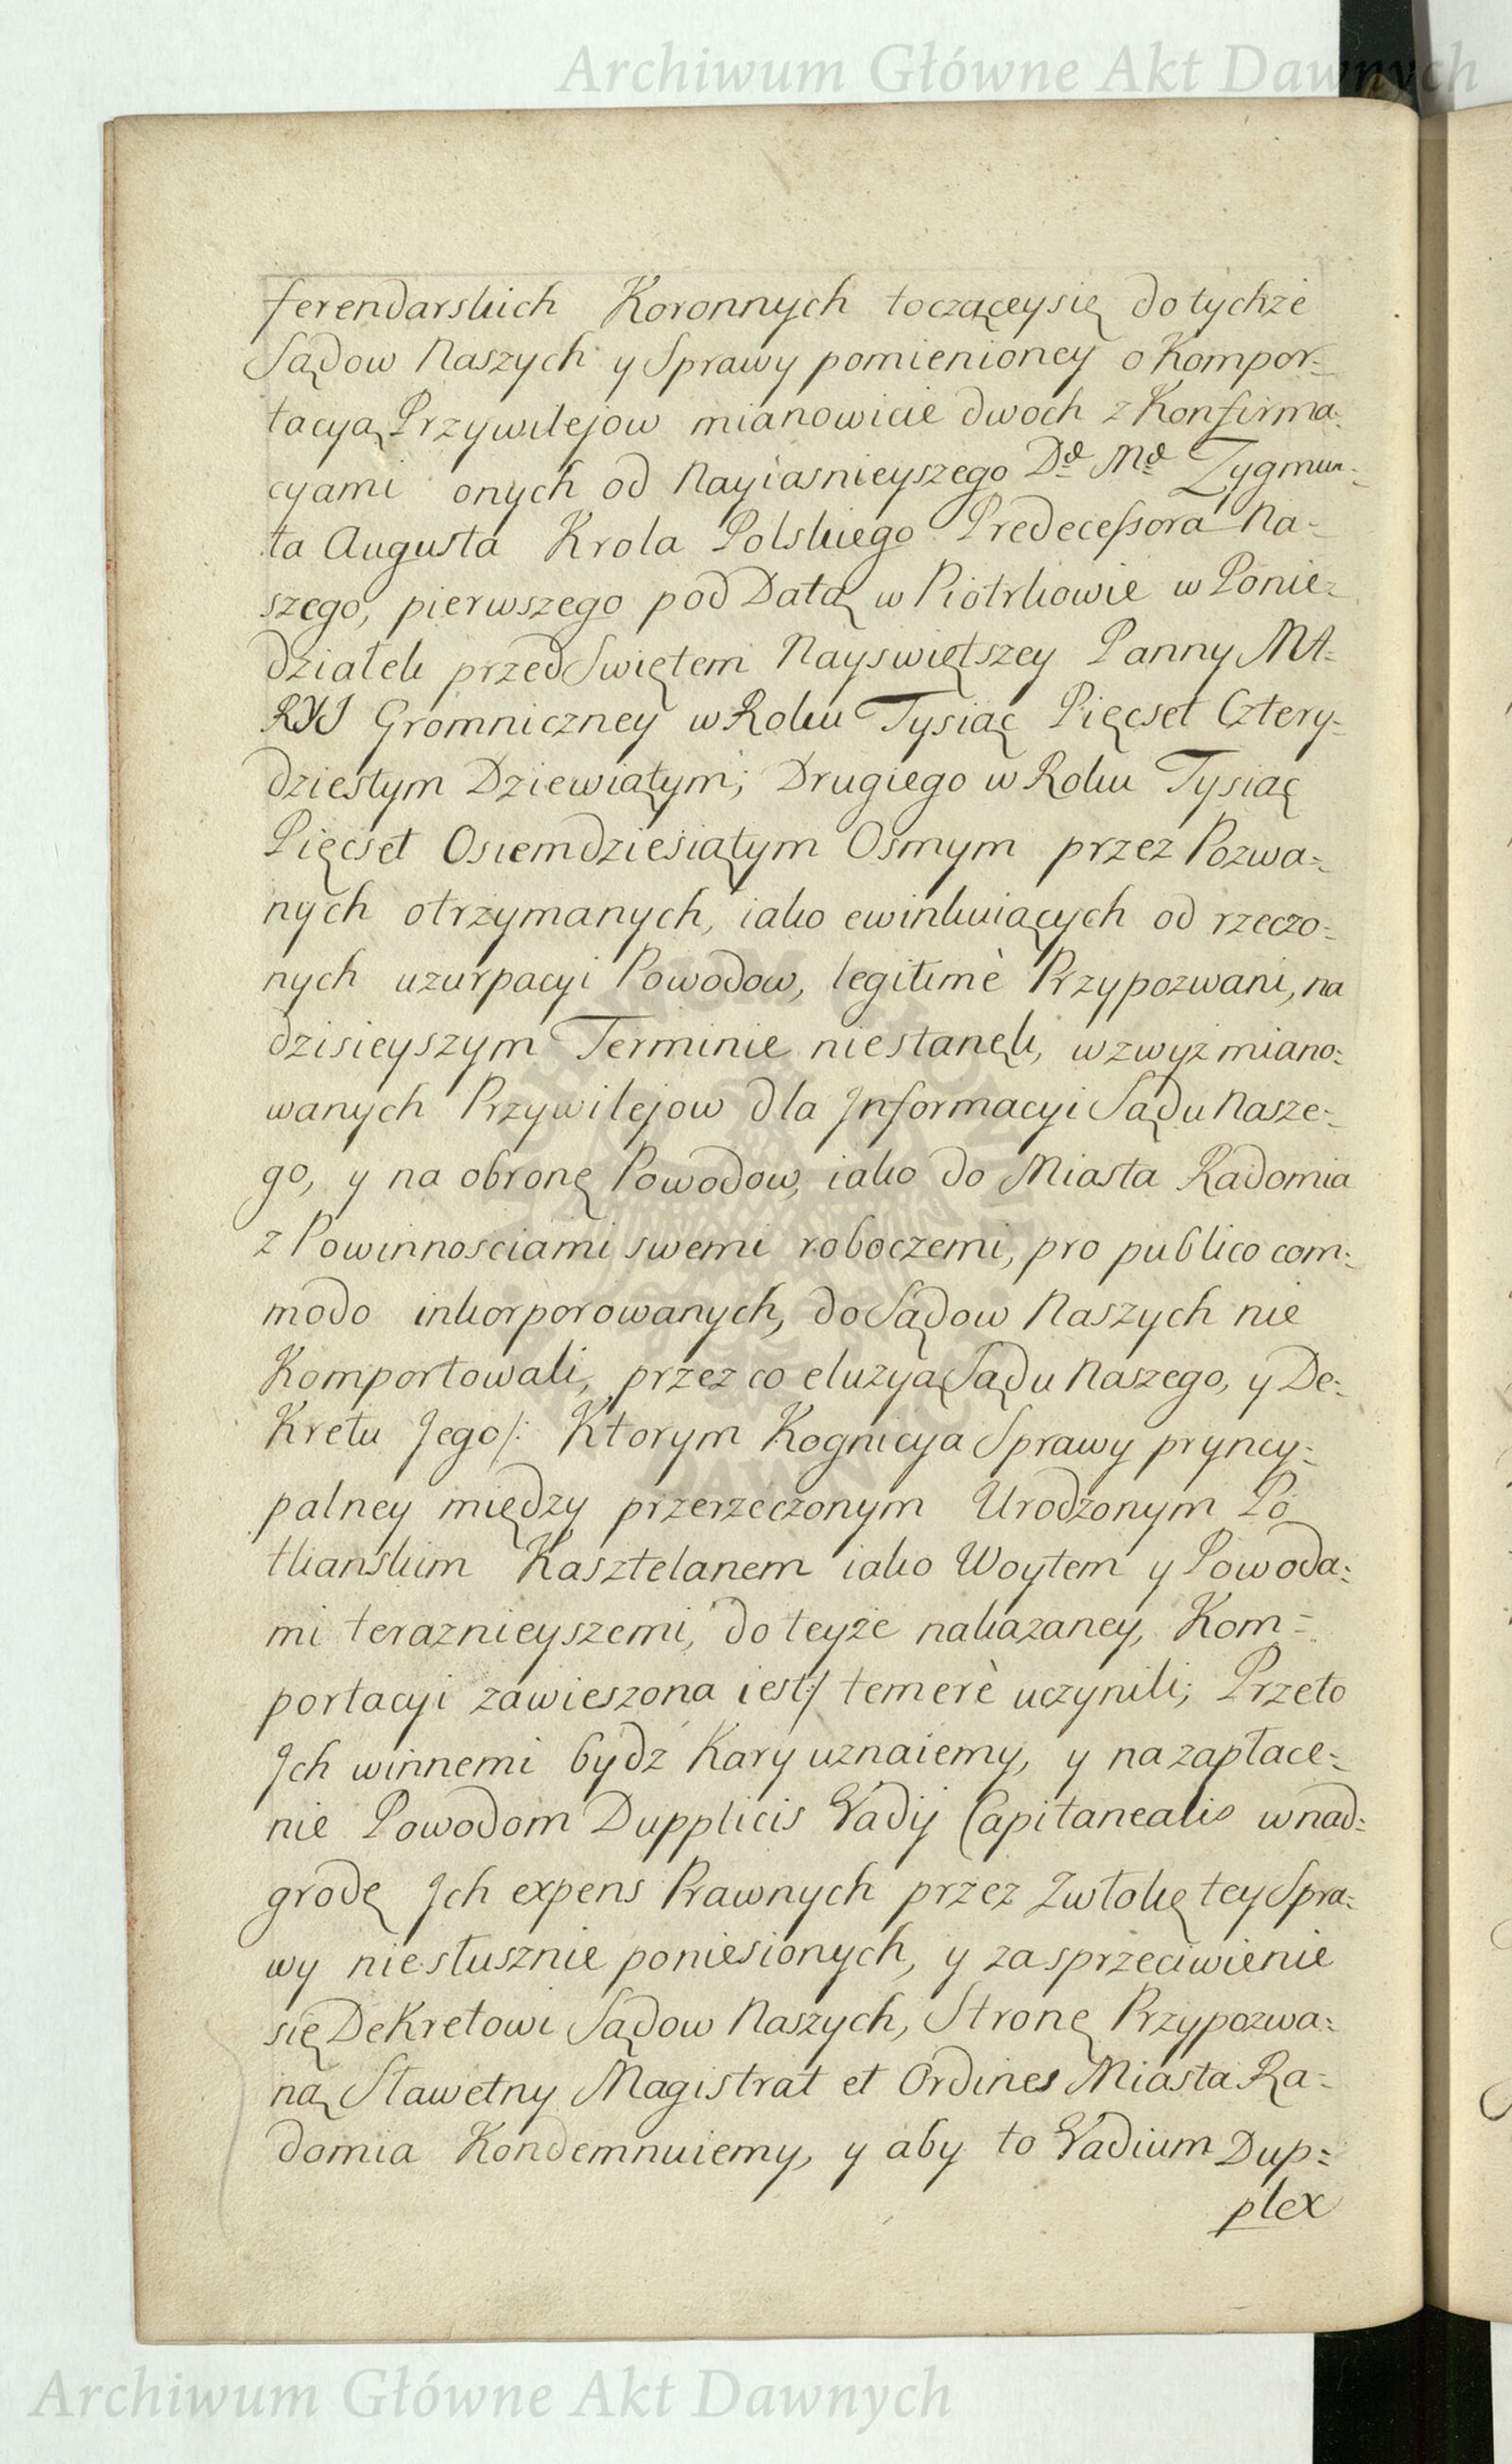 Archiwum Główne Akt Dawnych
ferendarskich Koronnych toczącey się do tychże
Sądow Naszych y Sprawy pomienioney o Kompor=
tacyą Przywilejow mianowicie dwoch z Konfirma=
cyami onych od Nayiasnieyszego D<sup>o</sup> M<sup>o</sup> Zygmun=
ta Augusta Krola Polskiego Predecessora Na=
szego, pierwszego pod Datą w Piotrkowie w Ponie=
działek przed Swiętem Nayswiętszey Panny MA=
RYI Gromniczney w Roku Tysiąc Pięcset Cztery=
dziestym Dziewiątym; Drugiego w Roku Tysiąc
Pięcset Osiemdziesiątym Osmym przez Pozwa=
nych otrzymanych, iako ewinkuiących od rzeczo=
nych uzurpacyi Powodow, legitimè Przypozwani, na
dzisieyszym Terminie niestaneli, wzwyż miano=
wanych Przywilejow dla Jnformacyi Sądu Nasze=
go, y na obronę Powodow, iako do Miasta Radomia
z Powinnosciami swemi roboczemi, pro publico com=
modo inkorporowanych, do Sądow Naszych nie
Komportowali, przez co eluzyą Sądu Naszego, y De=
Kretu Jego /: Ktorym Kognicya Sprawy pryncy=
palney między przerzeczonym Urodzonym Po
tkanskim Kasztelanem iako Woytem y Powoda=
mi teraznieyszemi, do teyże nakazaney, Kom=
portacyi zawieszona iest :/ temerè uczynili; Przeto
Jch winnemi bydź Kary uznaiemy, y na zapłace=
nie Powodom Dupplicis Vadij Capitanealis w nad=
grodę Jch expens Prawnych przez Zwłokę tey Spra=
wy niesłusznie poniesionych, y za sprzeciwienie
się DeKretowi Sądow Naszych, Stronę Przypozwa=
ną Sławetny Magistrat et Ordines Miasta Ra=
domia Kondemnuiemy, y aby to Vadium Dup=
plex
Archiwum Główne Akt Dawnych